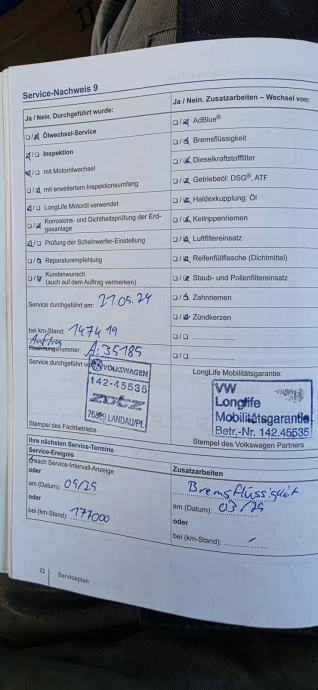 Service-Nachweis 9
Ja / Nein. Durchgeführt wurde:
Ölwechsel-Service
Inspektion
mit Motorölwechsel
mit erweitertem Inspektionsumfang
LongLife Motoröl verwendet
Korrosions- und Dichtheitsprüfung der Erd-
gasanlage
Prüfung der Scheinwerfer-Einstellung
Reparaturempfehlung
Kundenwunsch
(auch auf dem Auftrag vermerken)
Service durchgeführt am: 21.05.24
bei km-Stand: 147419
Auftrag
nummer: A:35185
Service durchgeführt von:
VOLKSWAGEN
142-45535
zotz
76829 LANDAU/PL.
Stempel des Fachbetriebs
Ja / Nein. Zusatzarbeiten – Wechsel von:
AdBlue®
Bremsflüssigkeit
Dieselkraftstofffilter
Getriebeöl: DSG®, ATF
Haldexkupplung: Öl
Keilrippenriemen
Luftfiltereinsatz
Reifenfüllflasche (Dichtmittel)
Staub- und Pollenfiltereinsatz
Zahnriemen
Zündkerzen
LongLife Mobilitätsgarantie:
VW
Longlife
Mobilitätsgarantie
Betr.-Nr. 142.45535
Stempel des Volkswagen Partners
Ihre nächsten Service-Termine
Service-Ereignis
nach Service-Intervall-Anzeige
oder
am (Datum): 05/25
oder
bei (km-Stand): 177000
Zusatzarbeiten
Bremsflüssigkeit
am (Datum): 03/25
oder
bei (km-Stand): -
22 | Serviceplan